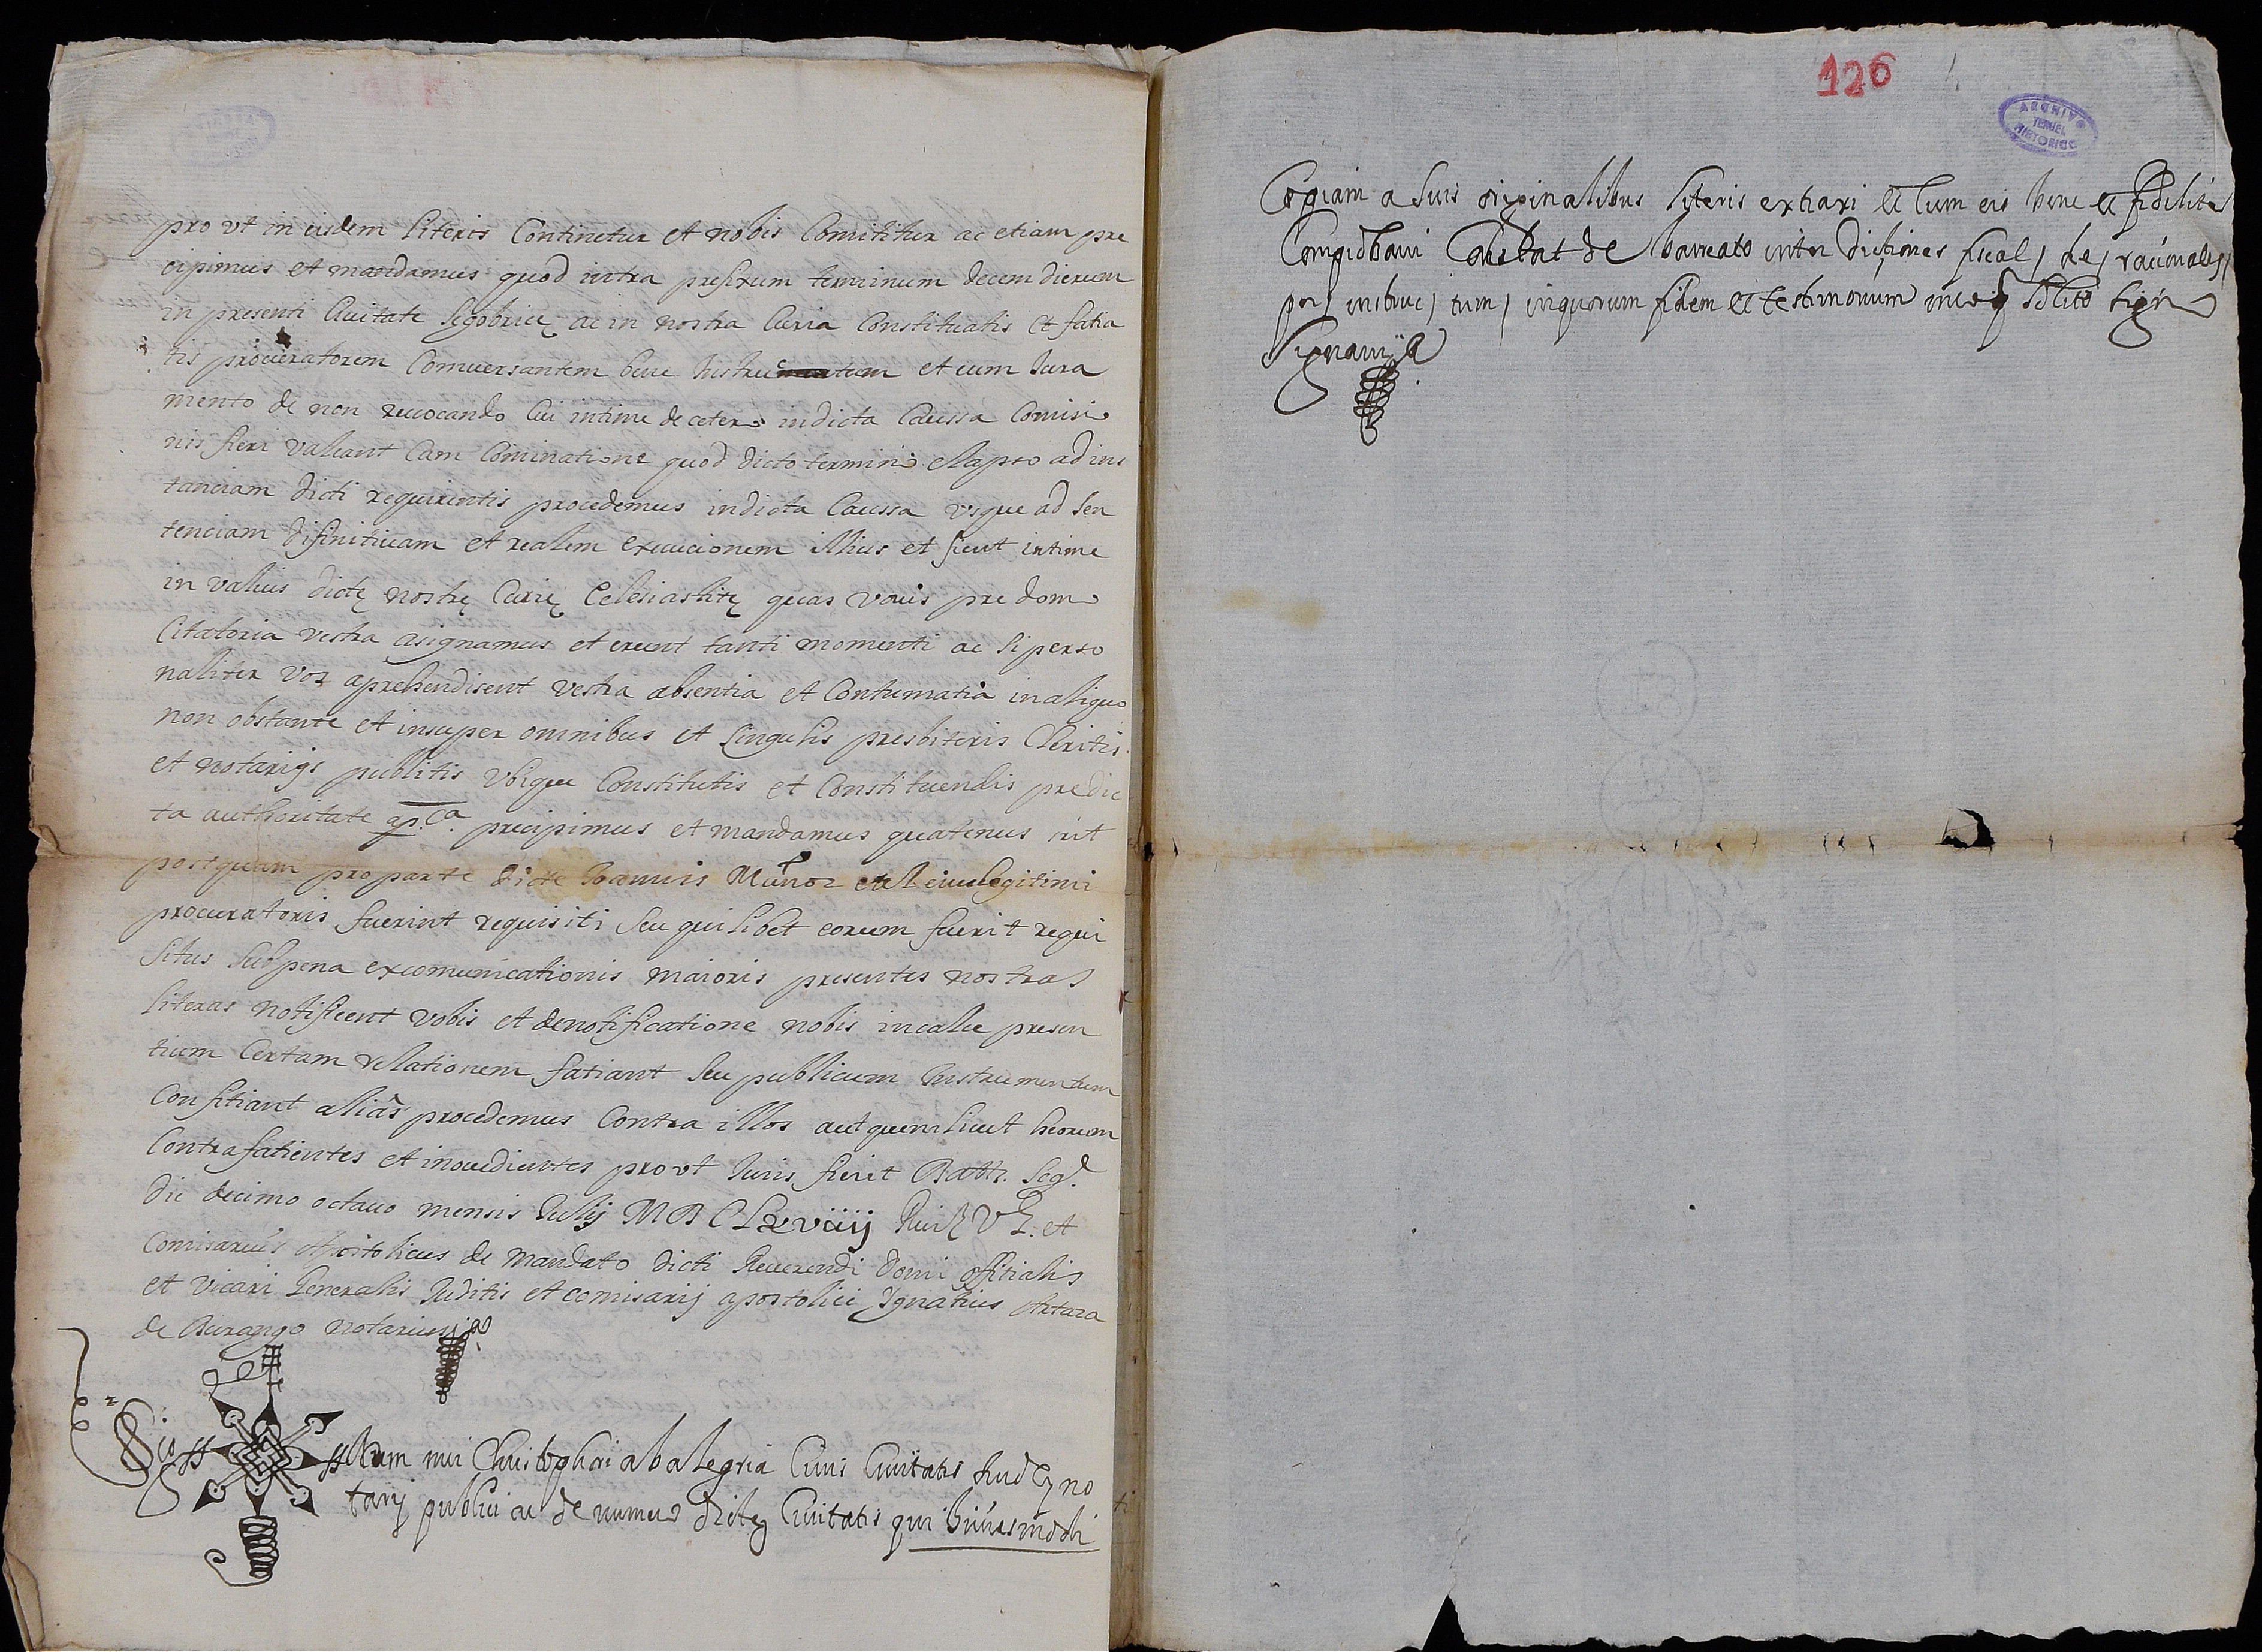 pro vt in eisdem literis Continetur et nobis Comititur ac etiam pre
cipimus et mandamus quod intra prefixum terminum decem dierum
in presenti Ciuitate Segobricę ac in nostra Curia Constituatis et fatia
tis procuratorem Comuersantem bene Instructum et cum Jura
mento de non reuocando Cui intime de cetero in dicta Caussa Comisio
nis fieri valeant Cam Cominatione quod dicto termino elapso ad ins
tanciam dicti requirentis procedemus in dicta Caussa vsque ad Sen
tenciam difinitiuam et realem execucionem illius et fient intime
in valuis dictę nostrę Curię Eclesiasticę quas vouis pre domo
Citatoria vestra asignamus et erunt tanti momenti ac si perso
naliter vos aprehendisent vestra absentia et Contumatia in aliquo
non obstante et insuper omnibus et Singulis presbiteris Cleritis
et notarijs publitis vbique Constitutis et Constituendis predic
ta authoritate ap.ca precipimus et mandamus quatinus
postquam pro parte dicte Joannis Munoz eius legitimi
procuratoris fuerint requisiti seu qui libet eorum fuerit requi
situs sub pena excomunicationis maioris presentes nostras
literas notificent vobis et de notificatione nobis in calce presen
tium Certam rellationem fatiant seu publicum Instrumentum
Confitiant aliàs procedemus Contra illos aut quemlicut heorum
Contrafatientes et inouedientes pro vt Juris fierit Datt. Seg.e
die decimo octauo mensis Julij MDCLxviiij Ruiz V. G. et
Comisarius Apostolicus de mandato dicti Reuerendi domi offitialis
et vicari Generalis Juditis et comisarij apostolici Ignatius Artara
de Durango notarius
Sig num mei Christophori abalegria Ciuis Ciuitatis no
tarij publici ac de numero dictę Ciuitatis qui huiusmodi
126
ARCHIVO
HISTORICO
TERUEL
Copiam a suis originalibus literis extraxi et cum eis bene et fideliter
Comprobaui Constat de barreato inter dictiones fiscal, de, racionales,
per, instruc, tum, in quorum fidem et testimonium meo q solito signo
Signaui